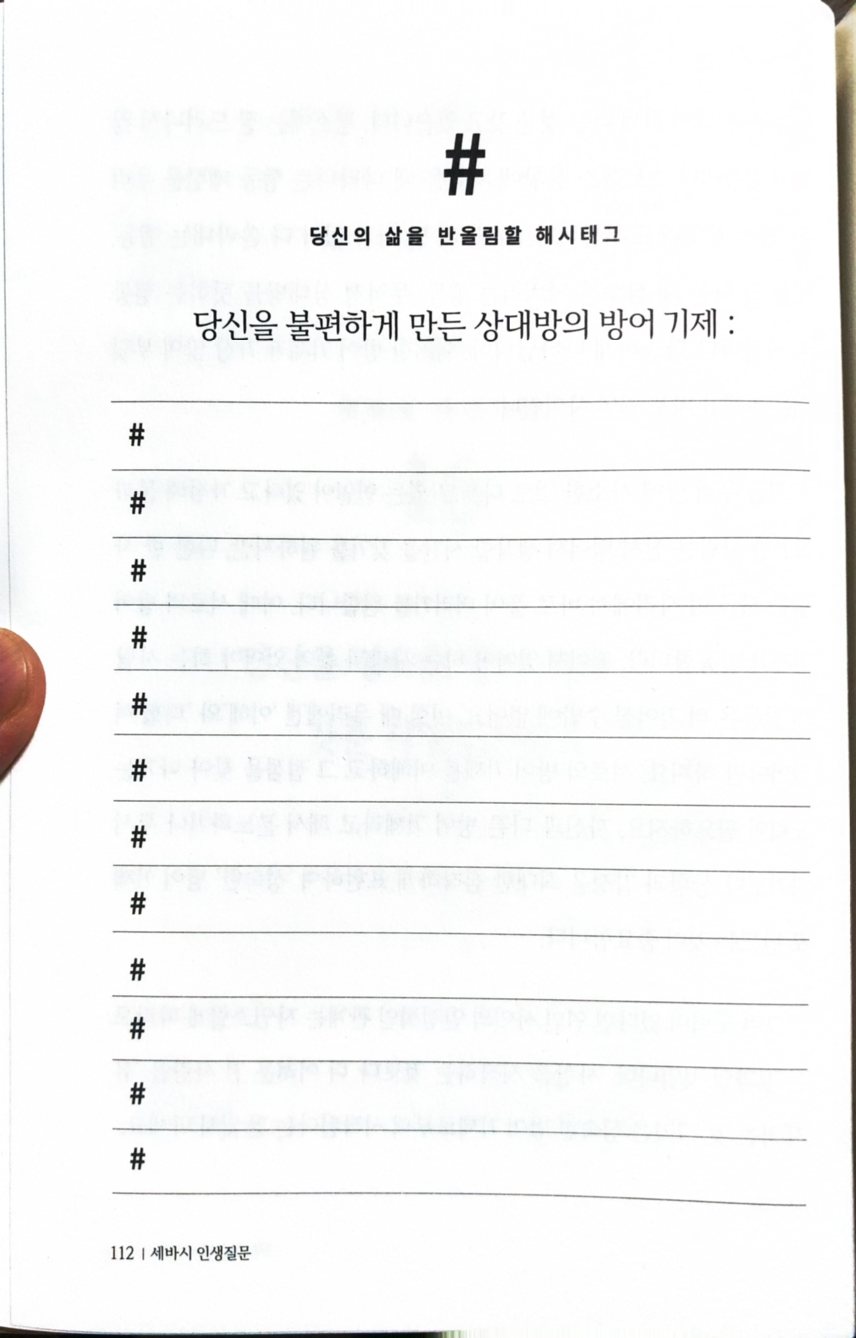 #
당신의 삶을 반올림할 해시태그
당신을 불편하게 만든 상대방의 방어 기제 :
#
#
#
#
#
#
#
#
#
#
#
#
112 | 세바시 인생질문